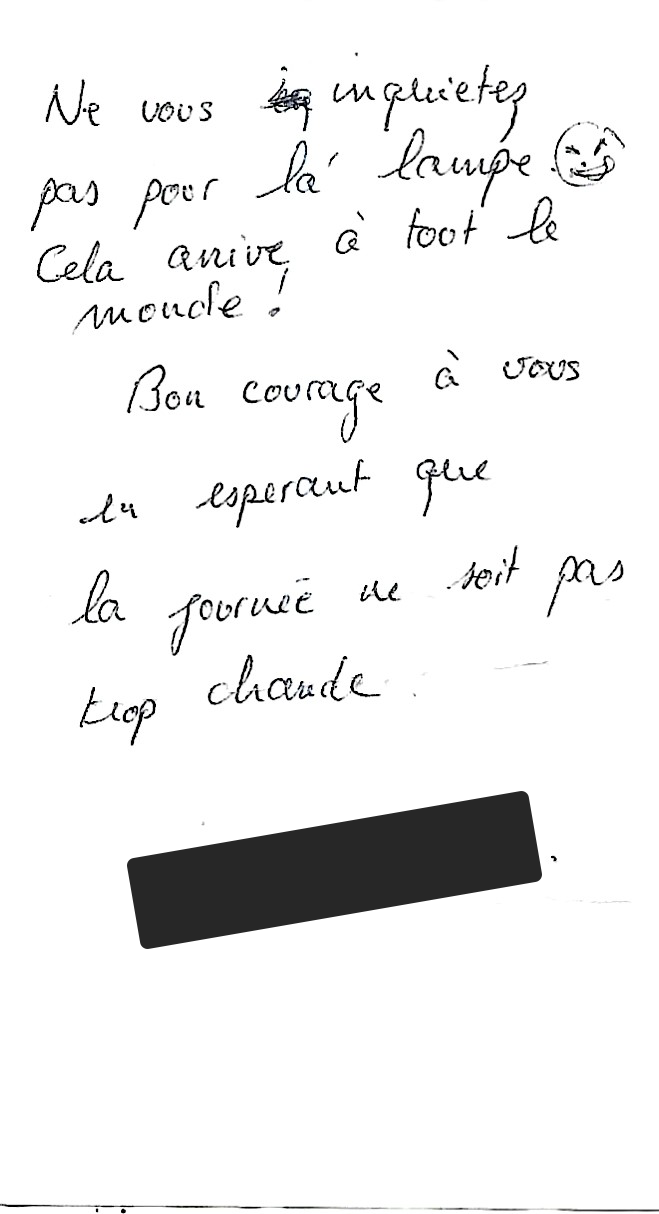 Ne vous inquietez
pas pour la lampe
Cela arrive à tout le
monde !
Bon courage à vous
en esperant que
la journée ne soit pas
trop chaude